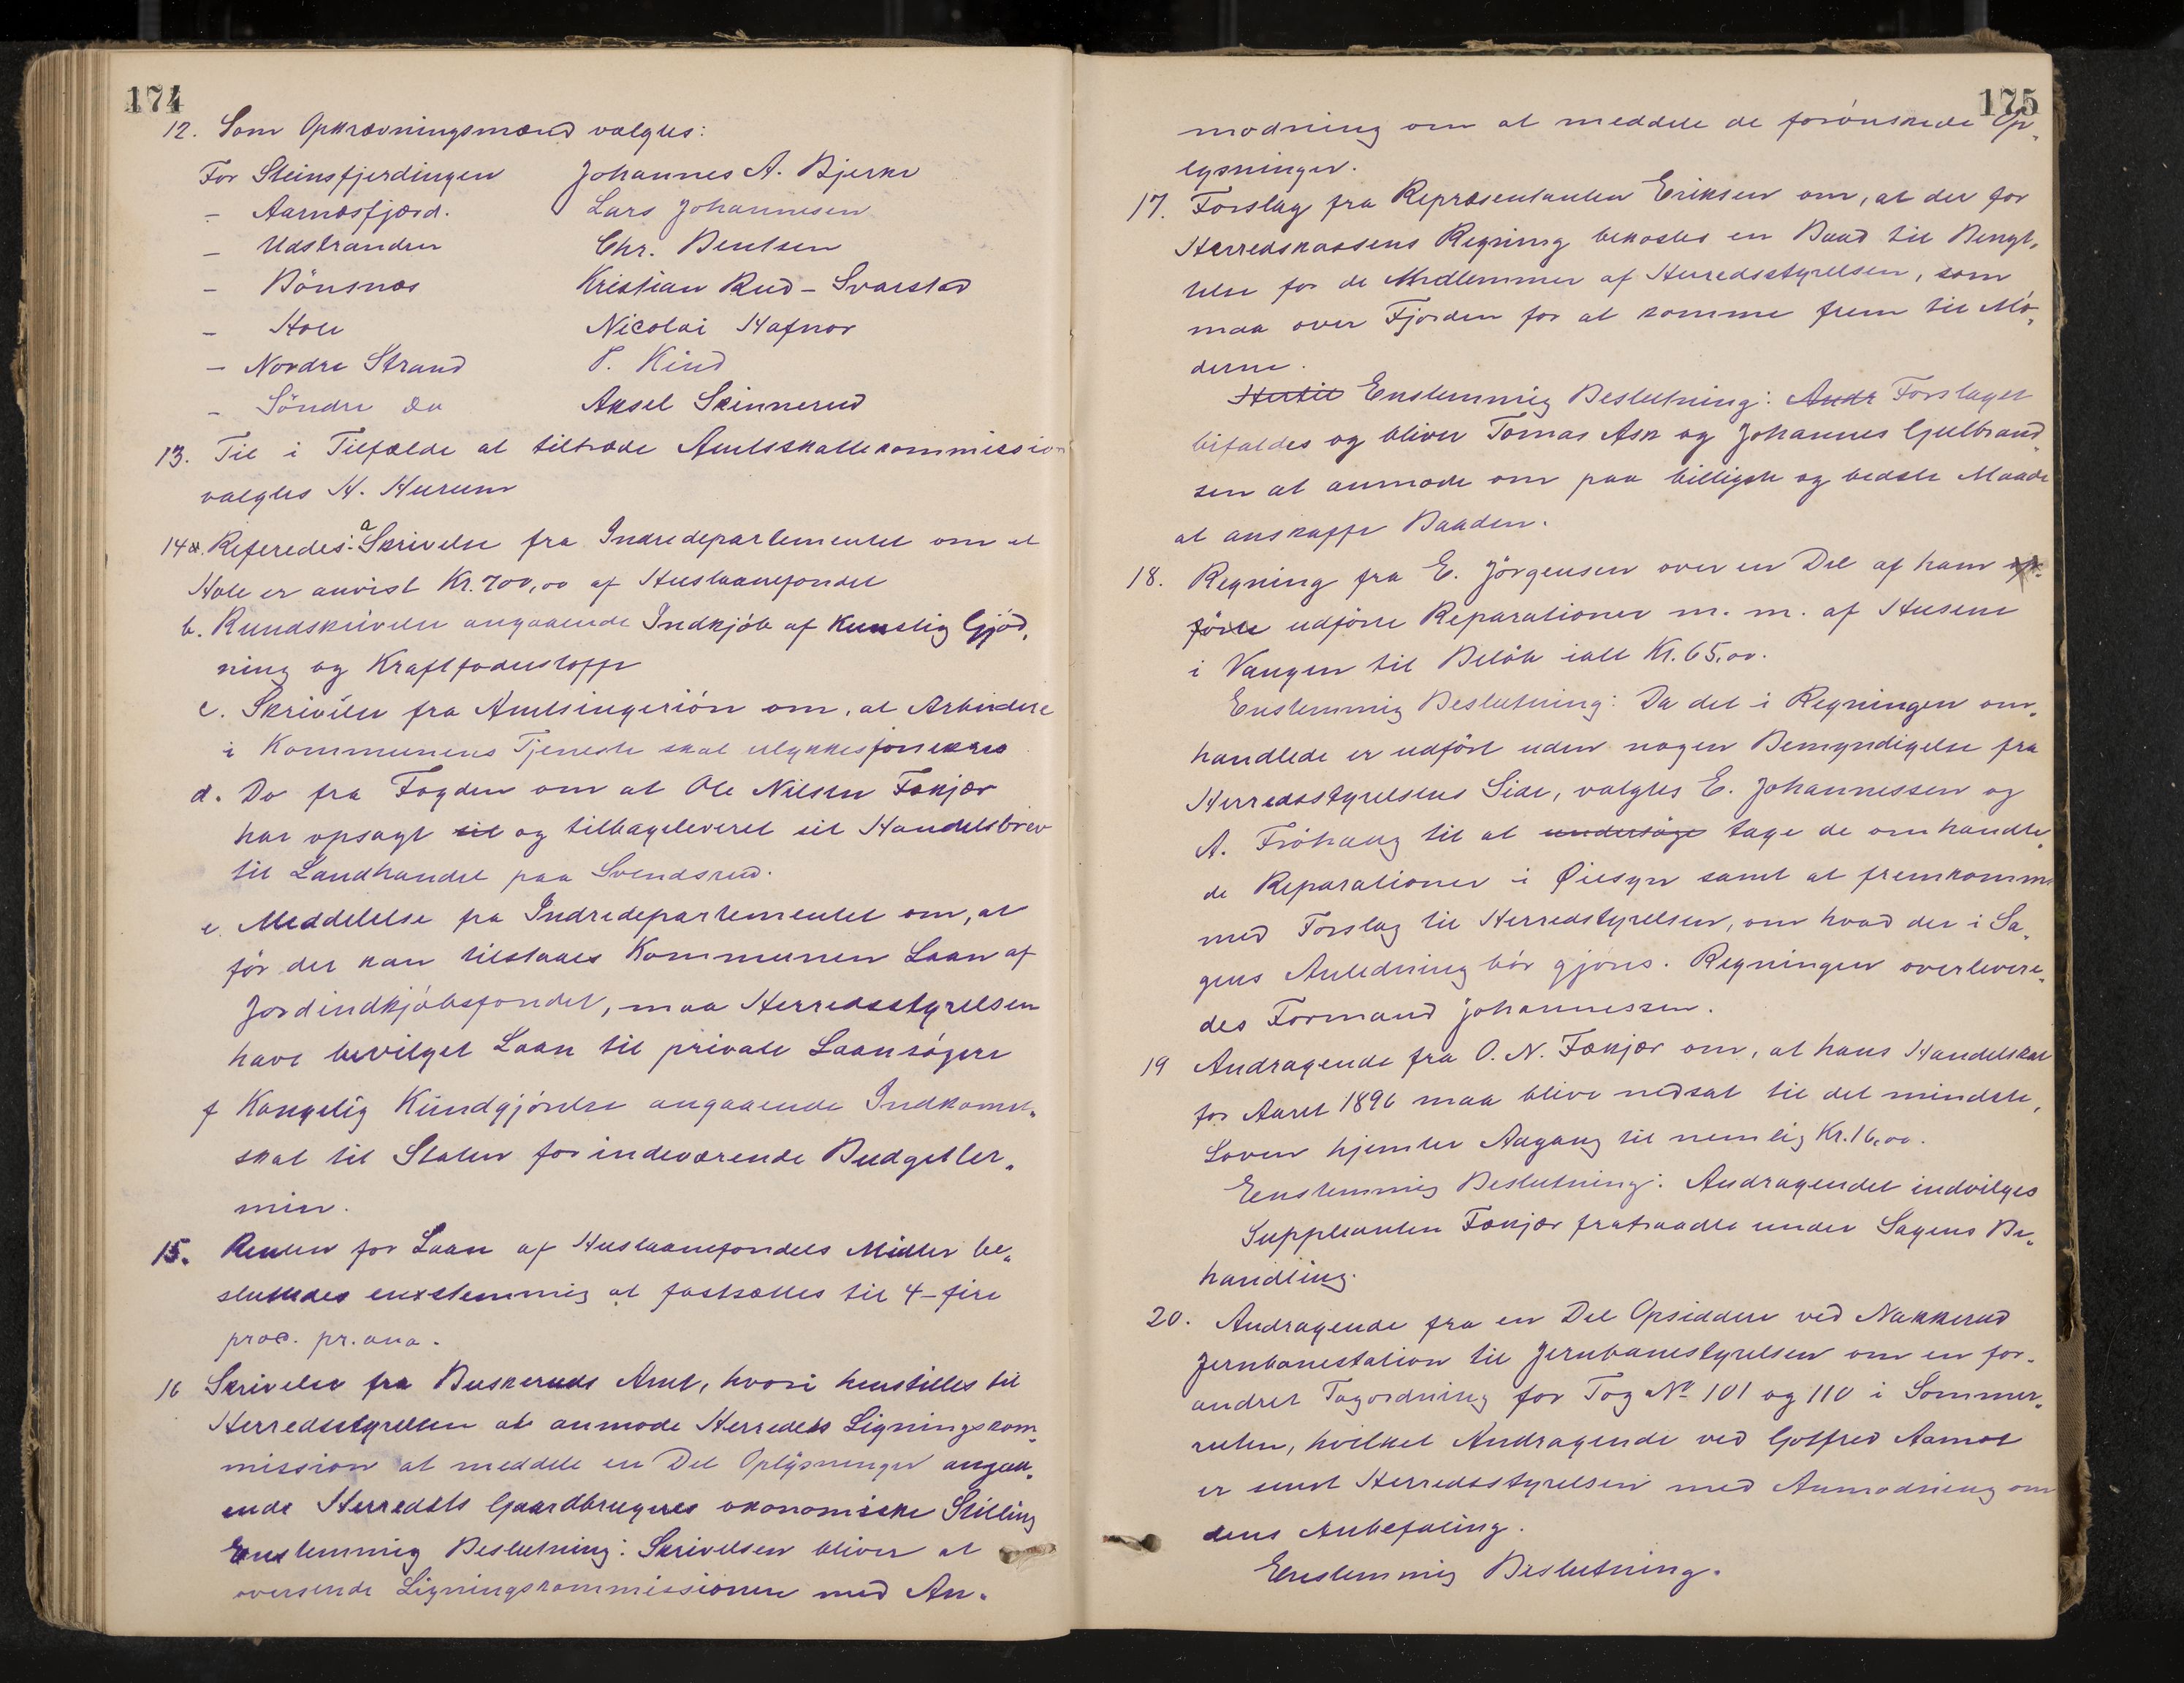 174
12. Som Opkrævningsmænd valgtes:
For Steinsfjerdingen Johannes A. Bjerke
- Aarnæsfjærd. Lars Johannesen
- Udstranden Chr. Bentsen
- Bönsnæs Kristian Rud - Svarstad
- Hole Nicolai Hafnor
- Nordre Strand T. Kind
- Söndre Do Aksel Skinnerud
13. Til i Tilfælde at tiltræde Amtsskattekommission
valgtes H. Hurum
14. Referedes: a Skrivelse fra Indredepartementet om at
Hole er anvist Kr. 700,00 af Huslaanefondet
b. Rundskrivelse angaaende Indkjöb af Kunstig Gjöd„
ning og Kraftfoderstoffe
c. Skrivelse fra Amtsingeniön om, at Arbeidere
i Kommunens Tjeneste skal ulykkesforsikres
d. Do fra Fogden om at Ole Nilsen Fækjær
har opsagt til og tilbageleveret sit Handelsbrev
til Landhandel paa Svendsrud.
e. Meddelelse fra Indredepartementet om, at
för der kan tilstaaes Kommunen Laan af
Jordindkjöbsfondet, maa Herredsstyrelsen
have bevilget Laan til private Laansögere
f Kongelig Kundgjörelse angaaende Indkomst„
skat til Staten for indeværende Budgetter„
min.
15. Renten for Laan af Huslaanefondets Midler be„
sluttedes enstemmig at fastsættes til 4 - fire
proc. pr. ano.
16 Skrivelse fra Buskeruds Amt, hvori henstilles til
Herredsstyrelsen at anmode Herredets Ligningskom„
mission at meddele en Del Oplysninger angaa„
ende Herredets Gaardbrugeres økonomiske Stilling
Enstemmig Beslutning: Skrivelsen bliver at
oversende Ligningskommissionen med An„
175
modning om at meddele de forönskede Op„
lysninger.
17. Forslag fra Repræsentanten Eriksen om, at der for
Herredskassens Regning bekostes en Baad til Benyt„
telse for de Medlemmer af Herredsstyrelsen, som
maa over Fjorden for at komme frem til Mö„
derne.
Hertil Enstemmig Beslutning: Andr Forslaget
bifaldes og bliver Tomas Ask og Johannes Gulbrand„
sen at anmode om paa billigste og bedste Maade
at anskaffe Baaden.
18. Regning fra E. Jörgensen over en Del af ham op„
förte udförte Reparationer m. m. af Husene
i Vangen til Belöb ialt Kr. 65,00.
Enstemmig Beslutning: Da det i Regningen om„
handlede er udfört uden nogen Bemyndigelse fra
Herredsstyrelsens Side, valgtes E. Johannessen og
A. Fröhaug til at undersöge tage de omhandle„
de Reparationer i Øiesyn samt at fremkomme
med Forslag til Herredstyrelsen, om hvad der i Sa„
gens Anledning bör gjöres. Regningen overlevere„
des Formand Johannessen.
19 Andragende fra O. N. Fækjær om, at hans Handelskat
for Aaret 1896 maa blive nedsat til det mindste,
Loven hjemler Adgang til nemlig Kr. 16,00.
Enstemmig Beslutning: Andragendet indvilges
Suppleanten Fækjær fratraadte under Sagens Be„
handling.
20. Andragende fra en Del Opsiddere ved Nakkerud
Jernbanestation til Jernbanestyrelsen om en for„
andret Togordning for Tog No 101 og 110 i Sommer„
ruten, hvilket Andragende ved Gotfred Aamot
er sendt Herredsstyrelsen med Anmodning om
dens Anbefaling.
Enstemmig Beslutning.